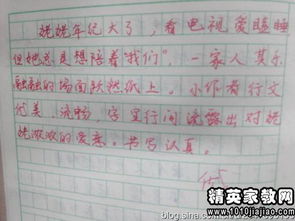 姥姥年纪大了，看电视爱瞌睡
但她总是想陪着“我们”，一家人其乐
融融的场面跃然纸上。小作者行文
优美、流畅，字里行间流露出对姥
姥浓浓的爱意。书写认真。
blog.sina.com.cn
精英家教网
www.1010jiajiao.com